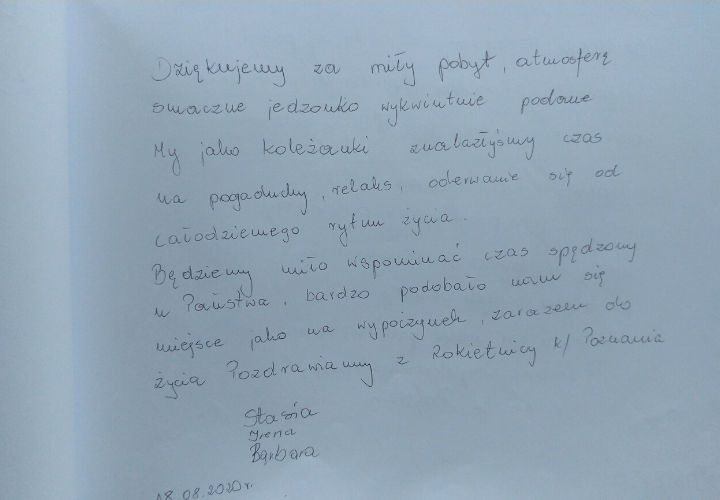 Dziękujemy za miły pobyt, atmosferę
smaczne jedzonko wykwintnie podane
My jako koleżanki znalazłyśmy czas
na pogaduchy, relaks, oderwanie się od
całodziennego rytmu życia.
Będziemy miło wspominać czas spędzony
u Państwa, bardzo podobało nam się
miejsce jako na wypoczynek, zarazem do
życia Pozdrawiamy z Rokietnicy k/ Poznania
Stasia
Irena
Barbara
18.08.2020r.